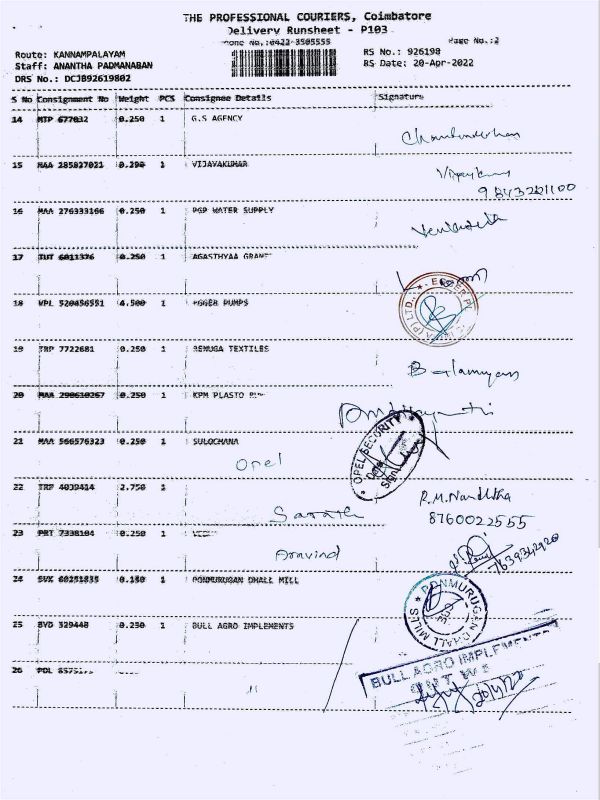 THE PROFESSIONAL COURIERS, Coimbatore
Delivery Runsheet - P103
Phone No.:0422-3505555 Page No.:2
Route: KANNAMPALAYAM RS No.: 926198
Staff: ANANTHA PADMANABAN RS Date: 20-Apr-2022
DRS No.: DCJB92619802
S No Consignment No Weight PCS Consignee Details Signature
14 MTP 677032 0.250 1 G.S AGENCY
15 MAA 285827021 0.200 1 VIJAYAKUMAR
9843221100
16 MAA 276333166 0.250 1 PGP WATER SUPPLY
17 TUT 6011376 0.250 1 AGASTHYAA
18 VPL 520456551 4.500 1 EGGER PUMPS
19 TRP 7722681 0.250 1 RENUGA TEXTILES
20 MAA 290610267 0.250 1 KPM PLASTO
21 MAA 566576323 0.250 1 SULOCHANA
Opel
OPEL SECURITY
22 TRP 4039414 2.750 1
R.M. Nandhka
8760022555
Sarath
23 PRT 7338104 0.250 1
Aravind
7639342920
24 SVK 60251835 0.150 1 PONMURUGAN DHALL MILL
PONMURUGAN DHALL MILLS
25 BYD 329448 0.250 1 BULL AGRO IMPLEMENTS
BULL AGRO IMPLEMENTS
20/4/22
26 PDL